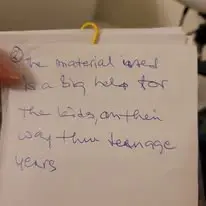 ② The material used
is a big help for
the kids, on their
way thru teenage
years